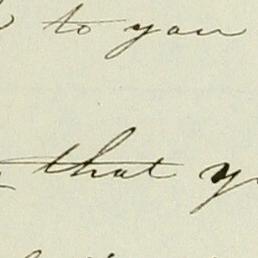 to you
that y